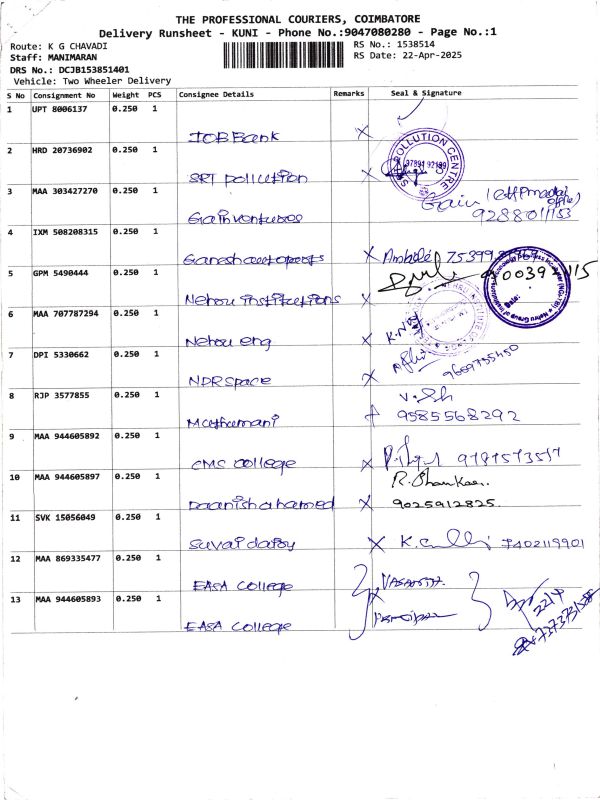 THE PROFESSIONAL COURIERS, COIMBATORE
Delivery Runsheet - KUNI - Phone No.:9047080280 - Page No.:1
Route: K G CHAVADI
RS No.: 1538514
Staff: MANIMARAN
RS Date: 22-Apr-2025
DRS No.: DCJB153851401
Vehicle: Two Wheeler Delivery
S No Consignment No Weight PCS Consignee Details Remarks Seal & Signature
1 UPT 8006137 0.250 1
IOB Bank X
2 HRD 20736902 0.250 1
POLLUTION CENTRE
SRT pollution X
3 MAA 303427270 0.250 1
Gain
Gain ventures 9288011153
4 IXM 508208315 0.250 1
Ganesh autoparts X
5 GPM 5490444 0.250 1
Nehru institutions X
6 MAA 707787294 0.250 1
Nehru eng X
7 DPI 5330662 0.250 1
NDR space X
9659755450
8 RJP 3577855 0.250 1
Muthumani 9585568292
9 MAA 944605892 0.250 1
CMC college X
10 MAA 944605897 0.250 1
R. Shankar.
Daanish ahamed X 9025912825
11 SVK 15056049 0.250 1
Suvai dairy X 7402119901
12 MAA 869335477 0.250 1
EASA College X
13 MAA 944605893 0.250 1
EASA College
22/4